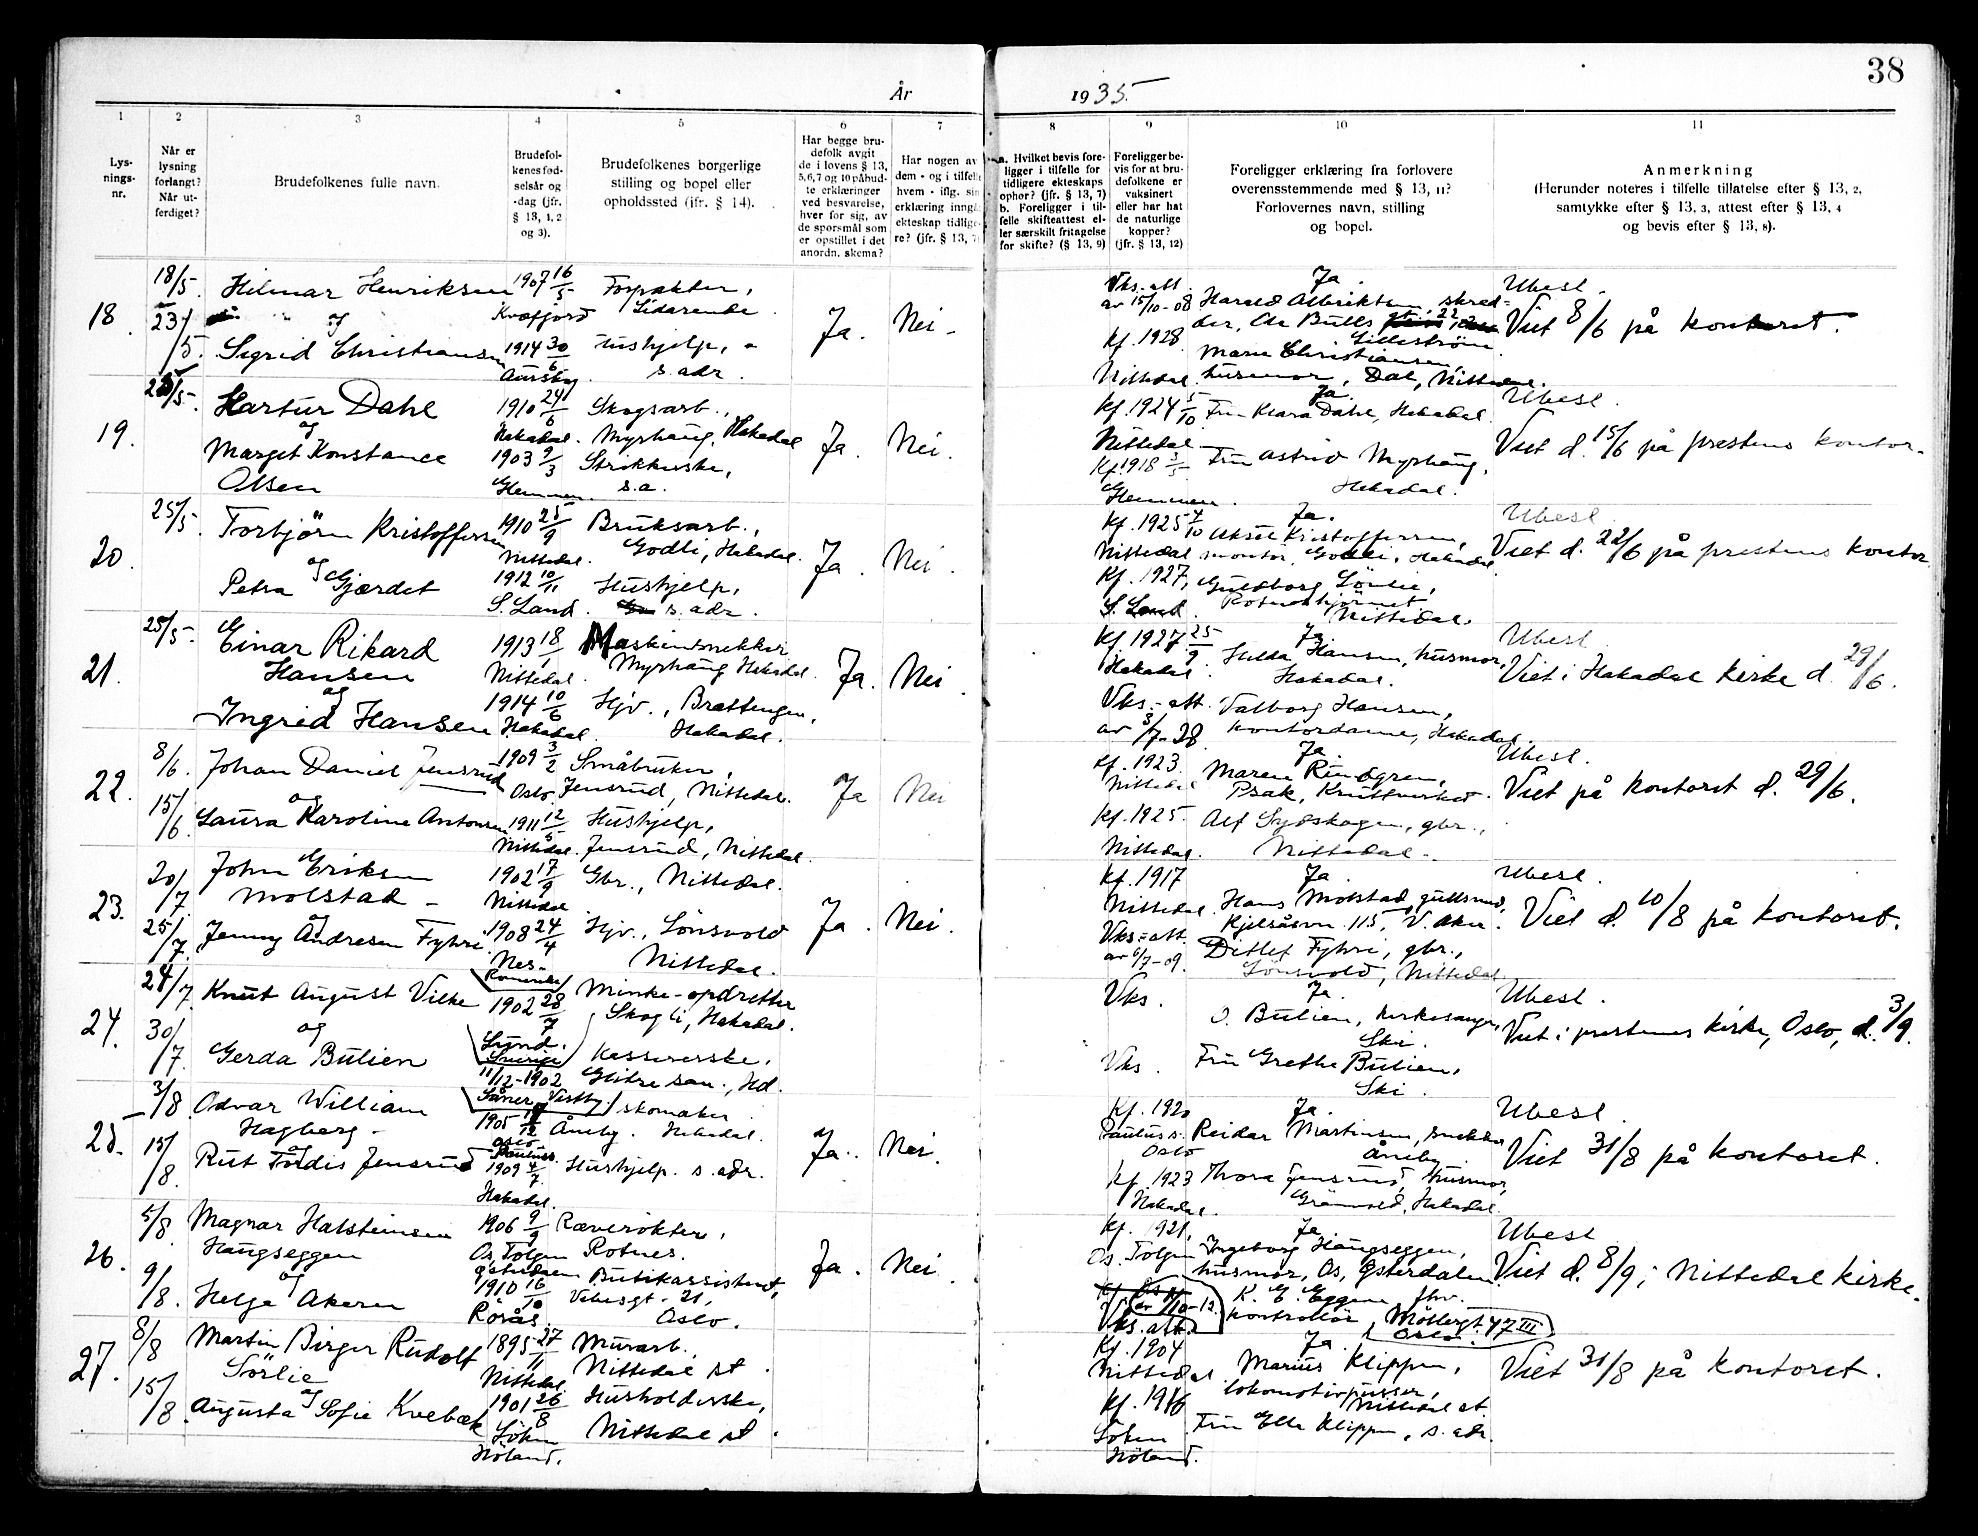 38
År 1935.
1
2
3
4
5
6
7
8
9
10
11
Lys-
nings-
nr.
Når er
lysning
forlangt?
Når ut-
ferdiget?
Brudefolkenes fulle navn.
Brudefol-
kenes fød-
selsår og
-dag (jfr.
§ 13, 1, 2
og 3).
Brudefolkenes borgerlige
stilling og bopel eller
opholdssted (jfr. § 14).
Har begge bru-
defolk avgit
de i lovens § 13,
5, 6, 7 og 10 påbud-
te erklæringer
ved besvarelse,
hver for sig, av
de spørsmål som
er opstillet i det
anordn. skema?
Har nogen av
dem - og i tilfelle
hvem - iflg. sin
erklæring inngå
ekteskap tidlige-
re? (jfr. § 13, 7)
a. Hvilket bevis fore-
ligger i tilfelle for
tidligere ekteskaps
ophør? (jfr. § 13, 7)
b. Foreligger i til-
felle skifteattest el-
ler særskilt fritagelse
for skifte? (§ 13, 9)
Foreligger be-
vis for at bru-
defolkene er
vaksinert
eller har hat
de naturlige
kopper?
(jfr. § 13, 12)
Foreligger erklæring fra forlovere
overensstemmende med § 13, 11?
Forlovernes navn, stilling
og bopel.
Anmerkning
(Herunder noteres i tilfelle tillatelse efter § 13, 2,
samtykke efter § 13, 3, attest efter § 13, 4
og bevis efter § 13, 8).
18.
18/5.
23/5.
Hilmar Henriksen
og
Sigrid Christiansen
1907 16/5
Kvæfjord
1914 30/6
Aursby.
Forpakter,
Lidarende
Hushjelp,
s. adr.
Ja.
Nei -
Vks. att.
av 15/10-08
Kf. 1928
Nittedal.
Ja.
Harald Albriktsen, skred-
der, Ole Bulls 22
Lillestrøm.
Marie Christiansen
husmor, Dal, Nittedal.
Ubesl.
Viet 8/6 på kontoret.
19.
25/5.
Hartur Dahl
og
Marget Konstance
Olsen
1910 24/6
Hakadal.
1903 9/3
Glemmen.
Skogsarb.,
Myrhaug, Hakadal
Strikkerske,
s.a.
Ja.
Nei.
Kf. 1924 5/10
Nittedal
Kf 1918 3/5
Glemmen.
Ja.
Fru Klara Dahl, Hakadal.
Fru Astrid Myrhaug,
Hakadal.
Ubesl.
Viet d. 15/6 på prestens kontor.
20.
25/5.
Torbjörn Kristoffersen
og
Petra Gjærdet
1910 25/9
Nittedal.
1912 10/11
S. Land.
Bruksarb.,
Godli, Hakadal.
Hushjelp,
s. adr.
Ja.
Nei.
Kf. 1925 4/10
Nittedal
Kf. 1927,
S. Land.
Ja.
Aksel Kristoffersen,
montör, Godli, Hakadal
Guldborg Sörlie,
Rotneshjörnet
Nittedal.
Ubesl
Viet d. 22/6 på prestens kontor
21.
25/5.
Einar Rikard
Hansen
og
Ingrid Hansen
1913 18/1
Nittedal.
1914 10/6
Hakadal.
Maskinsnekker
Myrhaug Hakadal.
Hjv., Brattengen,
Hakadal.
Ja.
Nei.
Kf. 1927. 25/9
Hakadal.
Vks.-att.
av 3/7-28
Ja.
Hilda Hansen, husmor,
Hakadal.
Valborg Hansen,
kontordame, Hakadal.
Ubesl
Viet i Hakadal kirke d. 29/6.
22.
8/6.
15/6.
Johan Daniel Jensrud
og
Laura Karoline Antonsen
1909 3/2
Oslo.
1911 12/5
Nittedal.
Småbruker,
Jensrud, Nittedal.
Hushjelp,
Jensrud, Nittedal.
Ja
Nei
Kf. 1923
Nittedal
Kf. 1925.
Nittedal.
Ja
Maren Rindgren,
Psak, Kruttverket.
Alf Sydskogen, gbr.,
Nittedal.
Ubesl.
Viet på kontoret d. 29/6.
23.
20/7
25/7.
John Eriksen
Molstad -
og
Jenny Andresen Fyhri
1902 17/9
Nittedal
1908 24/4
Nes-
Romerike
Gbr., Nittedal.
Hjv., Lönsvold
Nittedal.
Ja.
Nei.
Kf. 1917
Nittedal.
Vks.-att.
av 6/7-09.
Ja.
Hans Molstad, gullsmed,
Kjelsåsvn. 115, V. Aker.
Ditlef Fyhri, gbr.,
Lönsvold, Nittedal
Ubesl.
Viet d. 10/8 på kontoret.
24.
24/7
30/7
Knut August Vilke
og
Gerda Bulien
1902 28/7
Lund.
Sverige
11/12-1902
Såner, Vestby.
Minke-opdretter
Skogli, Hakadal.
Kassererske,
Glitre san., Hd.
Vks.
Vks.
Ja.
O. Bulien, kirkesanger,
Ski.
Fru Grethe Bulien,
Ski.
Ubesl.
Viet i prestenes kirke, Oslo, d. 3/9.
25.
3/8
15/8.
Odvar William
Hagberg -
og
Rut Tordis Jensrud
1905 17/12
Oslo
Paulus s.
1909 4/7
Hakadal.
skomaker
Åneby. Hakadal.
Hushjelp. s. adr.
Ja.
Nei.
Kf. 1920
Paulus s.
Oslo
Kf. 1923
Hakadal.
Ja.
Reidar Martinsen, snekker
Åneby
Thora Jensrud, husmor,
Grönvold, Hakadal.
Ubesl.
Viet 31/8 på kontoret.
26.
5/8.
9/8.
Magnar Halsteinsen
Haugseggen
og
Helga Akeren
1906 9/9
Os, Tolgen
Østerdalen
1910 16/10
Rörås.
Ræverökter,
Rotnes.
Butikassistent,
Vibesgt. 21,
Oslo.
Ja.
Nei.
Kf. 1921,
Os. Tolgen
Vks. att.
Ja
Ingeborg Haugseggen,
husmor, Os, Østerdalen
K. E. Eggen fhv.
kontrollör, Möllergt. 47 III
Oslo.
Ubesl
Viet d. 8/9 i Nittedal kirke.
27.
8/8
15/8
Martin Birger Rudolf
Sörlie
og
Augusta Sofie Kvebæk
1895 27/11
Nittedal
1901 26/8
Löken
Höland.
Murarb.,
Nittedal st.
Husholderske,
Nittedal st.
Kf. 1904
Nittedal.
Kf. 1916
Löken
Höland.
Ja.
Marius Klippen,
lokomotivpusser,
Nittedal st
Fru Ella Klippen, s. adr.
Viet 31/8 på kontoret.